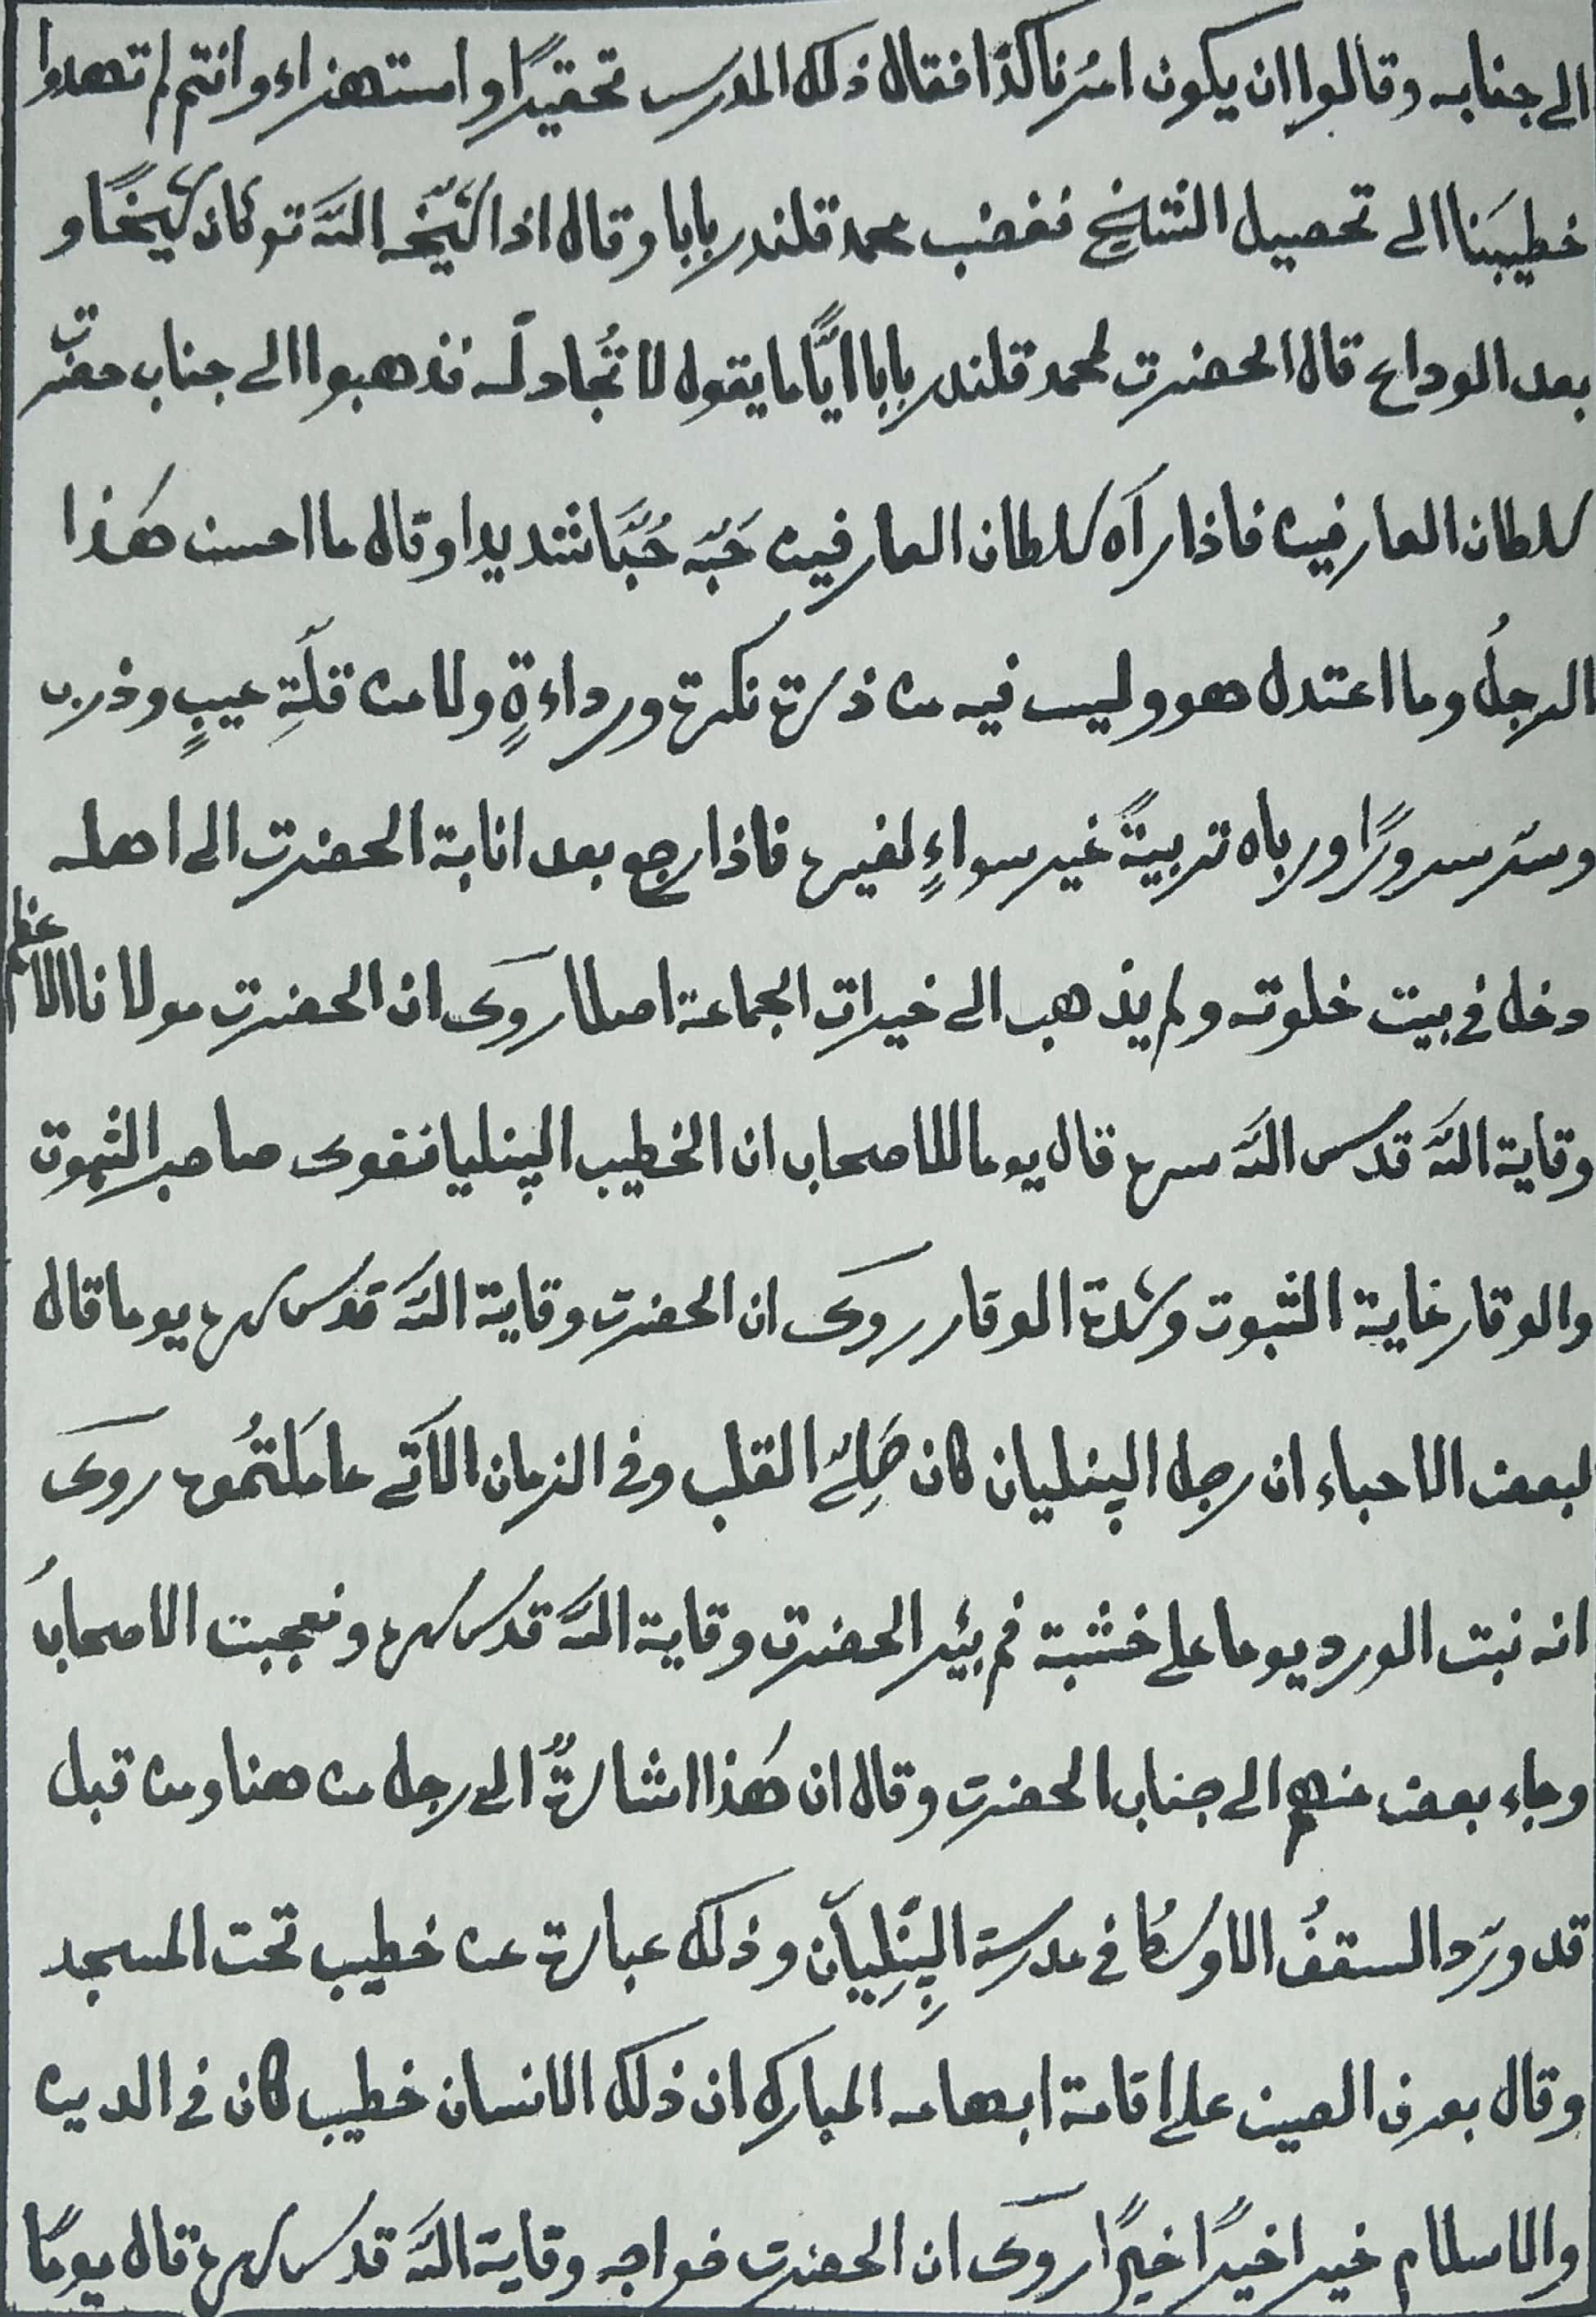 الى جنابه وقالوا ان يكون امرنا كذا فقال ذلك المدرس تحقيرًا و استهزاء وانتم لم تهدوا
خطيبَنا الى تحصيل التشيخ فغضب محمد قلندر بابا وقال اذا شيّخه اللّه تو كان شيخًا و
بعد الوداع قال الحضرت لمحمد قلندر بابا ايًّا ما يقول لا تُجادله فذهبوا الى جناب حضرت
سلطان العارفين فاذا رآه سلطان العارفين حَبّه حُبًّا شديدا وقال ما احسن هذا
الرجلُ وما اعتدل هو وليس فيه من ذرة نكرة ورداءةٍ ولا من قلّةِ عيبٍ وذرب
وسرّ سرورًا ورباه تربيةً غير سواءٍ لغيره فاذا رجع بعد انابة الحضرت الى اهله
دخل فى بيت خلوته ولم يذهب الى خيرات الجماعة اصلا روى ان الحضرت مولانا الاعظم
وقاية اللّه قدس اللّه سره قال يوما للاصحاب ان الخطيب الپنليا نقوى صاحب الثبوت
والوقار غاية الثبوت وشدة الوقار روى ان الحضرت وقاية اللّه قدس سره يوما قال
لبعض الاحباء ان رجل الپنليان كان القلب وفى الزمان الآتى روى
انه نبت الورد يوما على خشبة فم بئر الحضرت وقاية اللّه قدس سره وتعجبت الاصحابُ
وجاء بعض منهم الى جناب الحضرت وقال ان هذا اشارةٌ الى رجل من هنا ومن قبل
قد ورّد السقفُ الاوسكا فى مدرسة الپِنْلِيآن وذلك عبارة عن خطيب تحت المسجد
وقال بعرف العين على اقامة ابهامه المبارك ان ذلك الانسان خطيب كان فى الدين
والاسلام خيرا خيرًا خيرًا روى ان الحضرت خواجه وقاية اللّه قدس سره قال يومًا